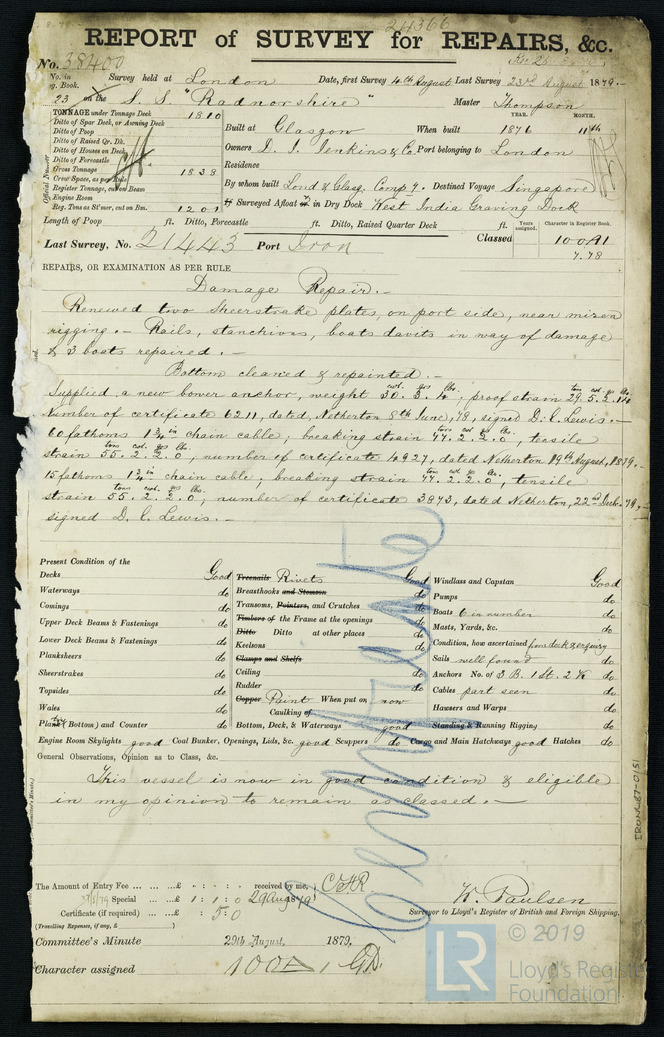 24366
REPORT of SURVEY for REPAIRS, &c.
No. 38400
No. in Reg. Book. Survey held at London Date, first Survey 4th August Last Survey 23rd August 1879.-
23 on the S.S. "Radnorshire" Master Thompson
TONNAGE under Tonnage Deck 1810
Ditto of Spar Deck, or Awning Deck
Ditto of Poop
Ditto of Raised Qr. Dk.
Ditto of Houses on Deck
Ditto of Forecastle
Gross Tonnage 1838
Crew Space, as per Rule
Register Tonnage, cut on Beam
Engine Room
Reg. Tons as St'mer, cut on Bm. 1201
Official Number
YEAR. MONTH.
Built at Glasgow When built 1876 11th
Owners D. J. Jenkins & Co. Port belonging to London
Residence
By whom built Lond & Glasg. Compy. Destined Voyage Singapore
If Surveyed Afloat or in Dry Dock West India Graving Dock
Length of Poop ft. Ditto, Forecastle ft. Ditto, Raised Quarter Deck ft.
Years assigned. Character in Register Book.
Last Survey, No. 21443 Port Iron Classed 100A1
7.78
REPAIRS, OR EXAMINATION AS PER RULE
Damage Repair.-
Renewed two Sheerstrake plates, on port side, near mizen
rigging.- Rails, stanchions, boats davits in way of damage
& 3 boats repaired.-
Bottom cleaned & repainted.-
cwt. qrs lbs. tons cwt. qrs lbs.
Supplied a new bower anchor, weight 30.3.4, proof strain 29.5.2.14
Number of certificate 6211, dated, Netherton 8th June, 78, signed D. C. Lewis.-
tons cwt qrs lb.
60 fathoms 1 3/4 in chain cable; breaking strain 77.2.2.0, tensile
tons cwt. qrs lbs.
strain 55.2.2.0, number of certificate 4927, dated Netherton 19th August, 1879.-
tons cwt qrs lbs.
15 fathoms 1 3/4 in chain cable; breaking strain 77.2.2.0, tensile
tons cwt. qrs lbs.
strain 55.2.2.0, number of certificate 3873, dated Netherton, 22nd Dec. 79,-
signed D. C. Lewis.-
Certificate
Present Condition of the
Decks Good
Waterways do
Comings do
Upper Deck Beams & Fastenings do
Lower Deck Beams & Fastenings do
Planksheers do
Sheerstrakes do
Topsides do
Wales do
Plank (Bottom) and Counter do
Treenails Rivets Good
Breasthooks and Stemson do
Transoms, Pointers, and Crutches do
Timbers of the Frame at the openings do
Ditto Ditto at other places do
Keelsons do
Clamps and Shelfs
Ceiling do
Rudder do
Copper Paint When put on now
Caulking of
Bottom, Deck, & Waterways good
Windlass and Capstan Good
Pumps do
Boats 6 in number do
Masts, Yards, &c. do
Condition, how ascertained from deck & enquiry
Sails well found do
Anchors No. of 3 B. 1 St. 2 K do
Cables part seen do
Hawsers and Warps do
Standing & Running Rigging do
Engine Room Skylights good Coal Bunker, Openings, Lids, &c. good Scuppers do Cargo and Main Hatchways good Hatches do
General Observations, Opinion as to Class, &c.
This vessel is now in good condition & eligible
in my opinion to remain as classed.-
IRON-67-0151
The Amount of Entry Fee ... ... ...£ : : received by me,
Special ... ...£ 1:1:0 29 Aug 1879
Certificate (if required) ... : 5:0
(Travelling Expenses, if any, £ )
W. Paulsen
Surveyor to Lloyd's Register of British and Foreign Shipping.
Committee's Minute 29th August, 1879,
Character assigned 100A1
© 2019
LR
Lloyd's Register
Foundation